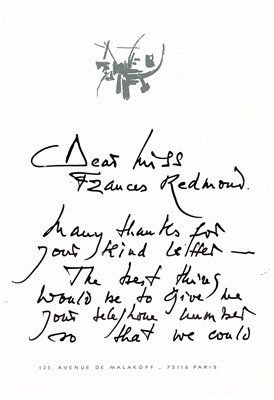 Dear Miss
Frances Redmond.
Many thanks for
your kind letter —
The best thing
would be to give me
your telephone number
so that we could
125, AVENUE DE MALAKOFF - 75116 PARIS